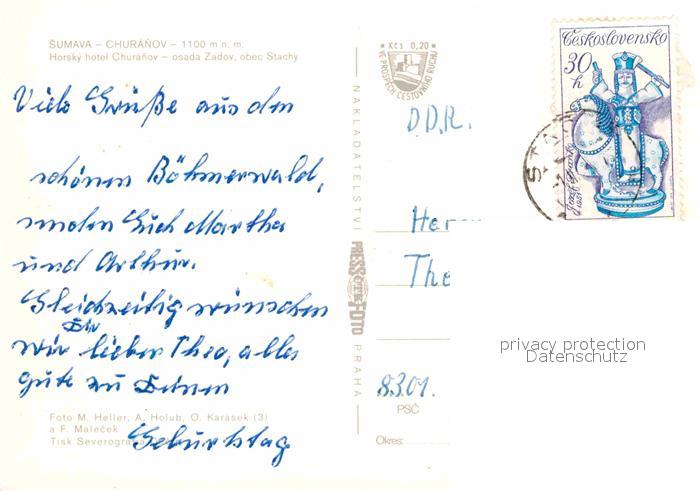 ŠUMAVA – CHURÁŇOV – 1100 m n. m.
Horský hotel Churáňov – osada Zadov, obec Stachy
Viele Grüße aus den
schönen Böhmerwald,
senden Euch Martha
und Arthur.
Gleichzeitig wünschen
Dir
wir lieber Theo, alles
gute zu Deinen
Geburtstag
Foto M. Heller, A. Holub, O. Karásek (3)
a F. Maleček
Tisk Severografia
NAKLADATELSTVÍ
PRESSFOTO
PRAHA
Kčs 0,20
VE PROSPĚCH CESTOVNÍHO RUCHU
Československo
30 h
1981
D.D.R.
Herr
The
8301.
PSČ
Okres:
privacy protection
Datenschutz